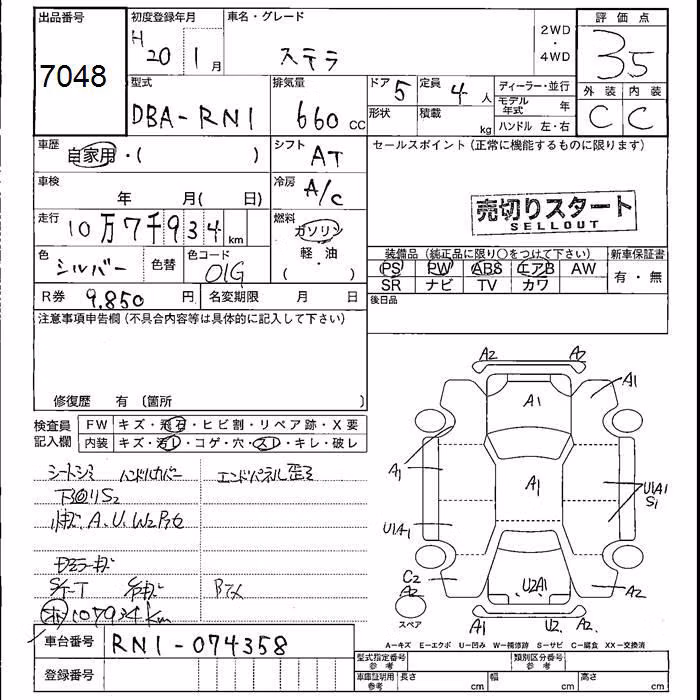 出品番号
7048
初度登録年月
H 20 1月
車名・グレード
ステラ
2WD
・
4WD
評価点
3.5
外装 内装
C C
型式
DBA-RN1
排気量
660 cc
ドア 5
定員 4 人
形状
積載 kg
ディーラー・並行
モデル年式 年
ハンドル 左・右
車歴
自家用・( )
シフト
AT
セールスポイント(正常に機能するものに限ります)
車検
年 月( 日)
冷房
A/C
売切りスタート
SELLOUT
走行
10万7千934 km
燃料
ガソリン
軽・油
( )
色
シルバー
色替
色コード
01G
装備品(純正品に限り○をつけて下さい)
新車保証書
PS PW ABS エアB AW
有・無
SR ナビ TV カワ
R券 9.850 円
名変期限 月 日
後日品
注意事項申告欄(不具合内容等は具体的に記入して下さい)
修復歴 有 〔箇所 〕
検査員
記入欄
FW キズ・飛石・ヒビ割・リペア跡・X要
内装 キズ・汚れ・コゲ・穴・スレ・キレ・破レ
シートシミ ハンドルカバー
エンドパネル歪ミ
下回りS2
A.U.W2
107934km
A2 A2
A1 A1
A1 A1
U1A1 U1A1
S1
C2
A2 U2A1 A2
A1 U2 A2
スペア
A-キズ E-エクボ U-凹み W-補修跡 S-サビ C-腐食 XX-交換済
車台番号
RN1-074358
登録番号
型式指定番号
参考
類別区分番号
参考
車庫証明用
参考
長さ cm
幅 cm
高さ cm